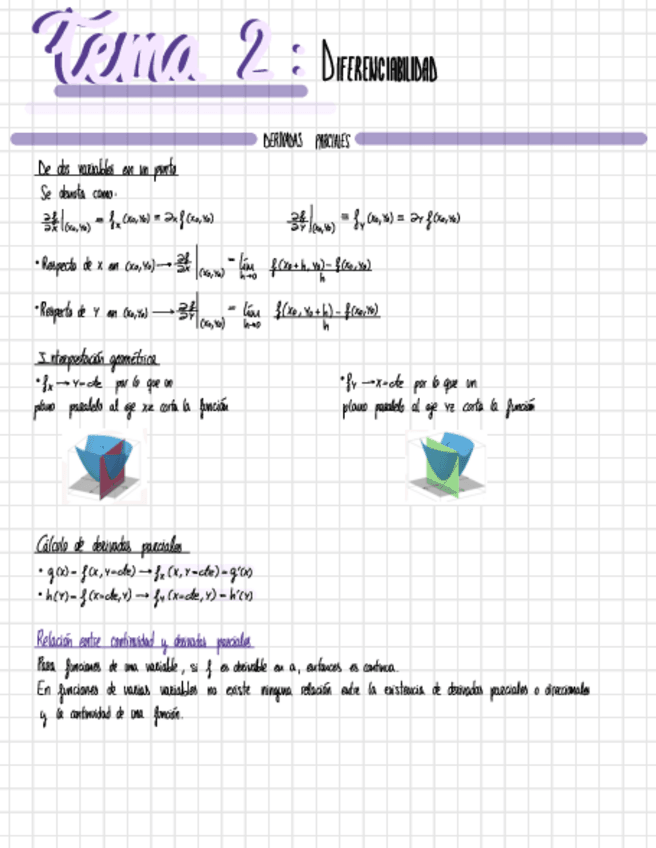 Tema 2: DIFERENCIABILIDAD
DERIVADAS PARCIALES
De dos variables en un punto
Se denota como:
∂f/∂x|(x₀,y₀) = fₓ(x₀,y₀) = ∂ₓf(x₀,y₀)   ∂f/∂y|(x₀,y₀) = f_y(x₀,y₀) = ∂_y f(x₀,y₀)
• Respecto de x en (x₀,y₀) → ∂f/∂x|(x₀,y₀) = lím h→0 (f(x₀+h, y₀) - f(x₀,y₀))/h
• Respecto de y en (x₀,y₀) → ∂f/∂y|(x₀,y₀) = lím h→0 (f(x₀, y₀+h) - f(x₀,y₀))/h
Interpretación geométrica
• fₓ → y=cte por lo que un
plano paralelo al eje xz corta la función
• f_y → x=cte por lo que un
plano paralelo al eje yz corta la función
Cálculo de derivadas parciales
• g(x) = f(x, y=cte) → fₓ(x, y=cte) = g'(x)
• h(y) = f(x=cte, y) → f_y(x=cte, y) = h'(y)
Relación entre continuidad y derivadas parciales
Para funciones de una variable, si f es derivable en a, entonces es continua.
En funciones de varias variables no existe ninguna relación entre la existencia de derivadas parciales o direccionales
y la continuidad de una función.